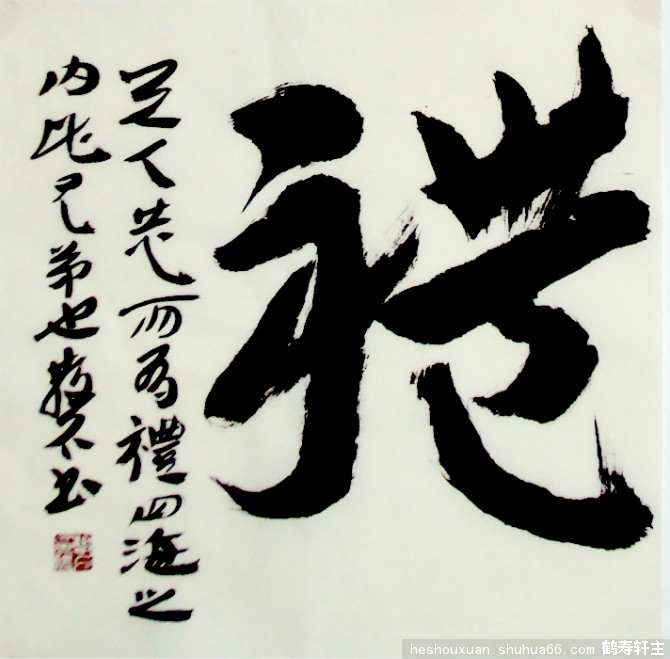 禮
与人恭而有禮四海之
内皆兄弟也书
heshouxuan.shuhua66.com 鹤寿轩主